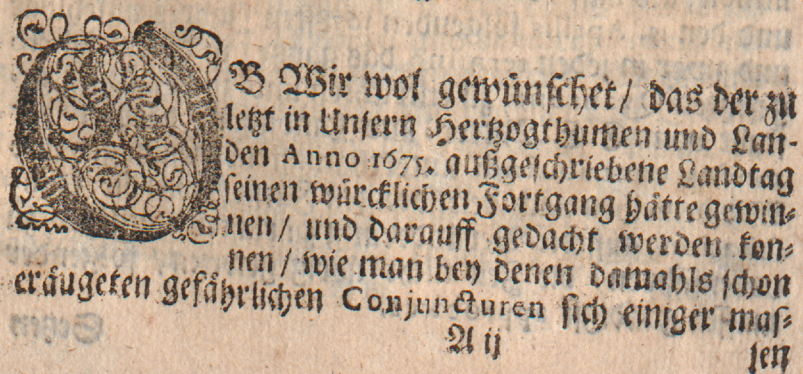 OB Wir wol gewünschet / das der zu
letzt in Unsern Hertzogthumen und Lan-
den Anno 1675. außgeschriebene Landtag
seinen würcklichen Fortgang hätte gewin-
nen / und darauff gedacht werden kon-
nen / wie man bey denen damahls schon
eräugeten gefährlichen Conjuncturen sich einiger mas-
A ij
sen